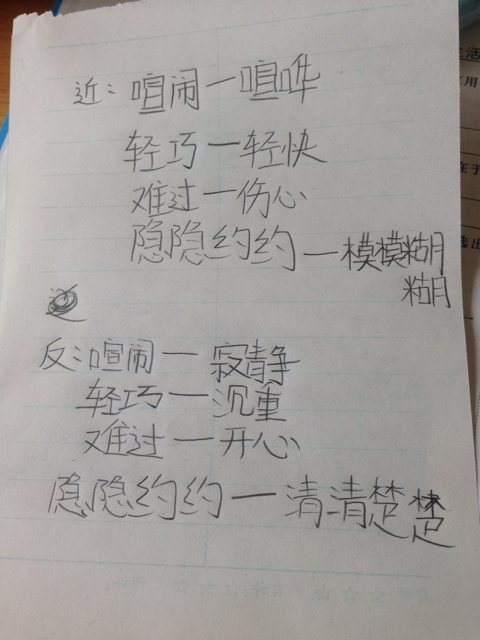 近：喧闹一喧哗
轻巧一轻快
难过一伤心
隐隐约约一模模糊
糊
反：喧闹一寂静
轻巧一沉重
难过一开心
隐隐约约一清清楚楚